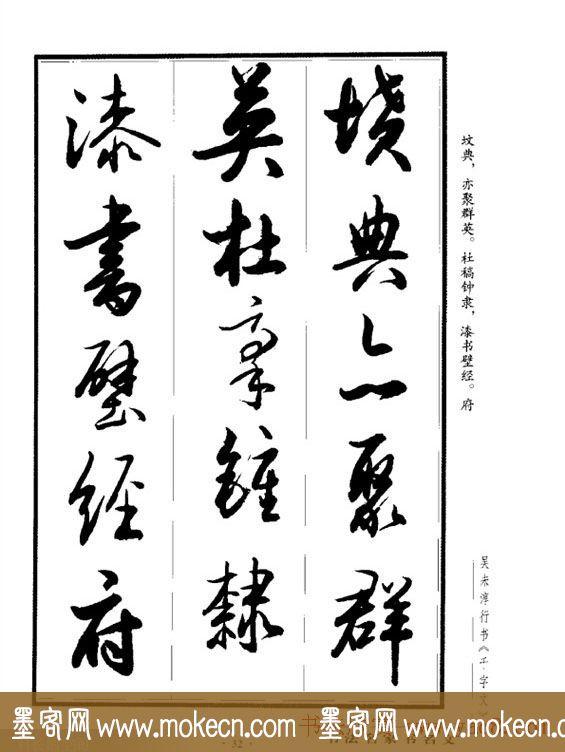 坟典，亦聚群英。杜稿钟隶，漆书壁经。府
墳典亦聚群
英杜稾鍾隸
漆書壁經府
吴未淳行书《千字文》
墨客网 www.mokecn.com 墨客网 www.mokecn.com